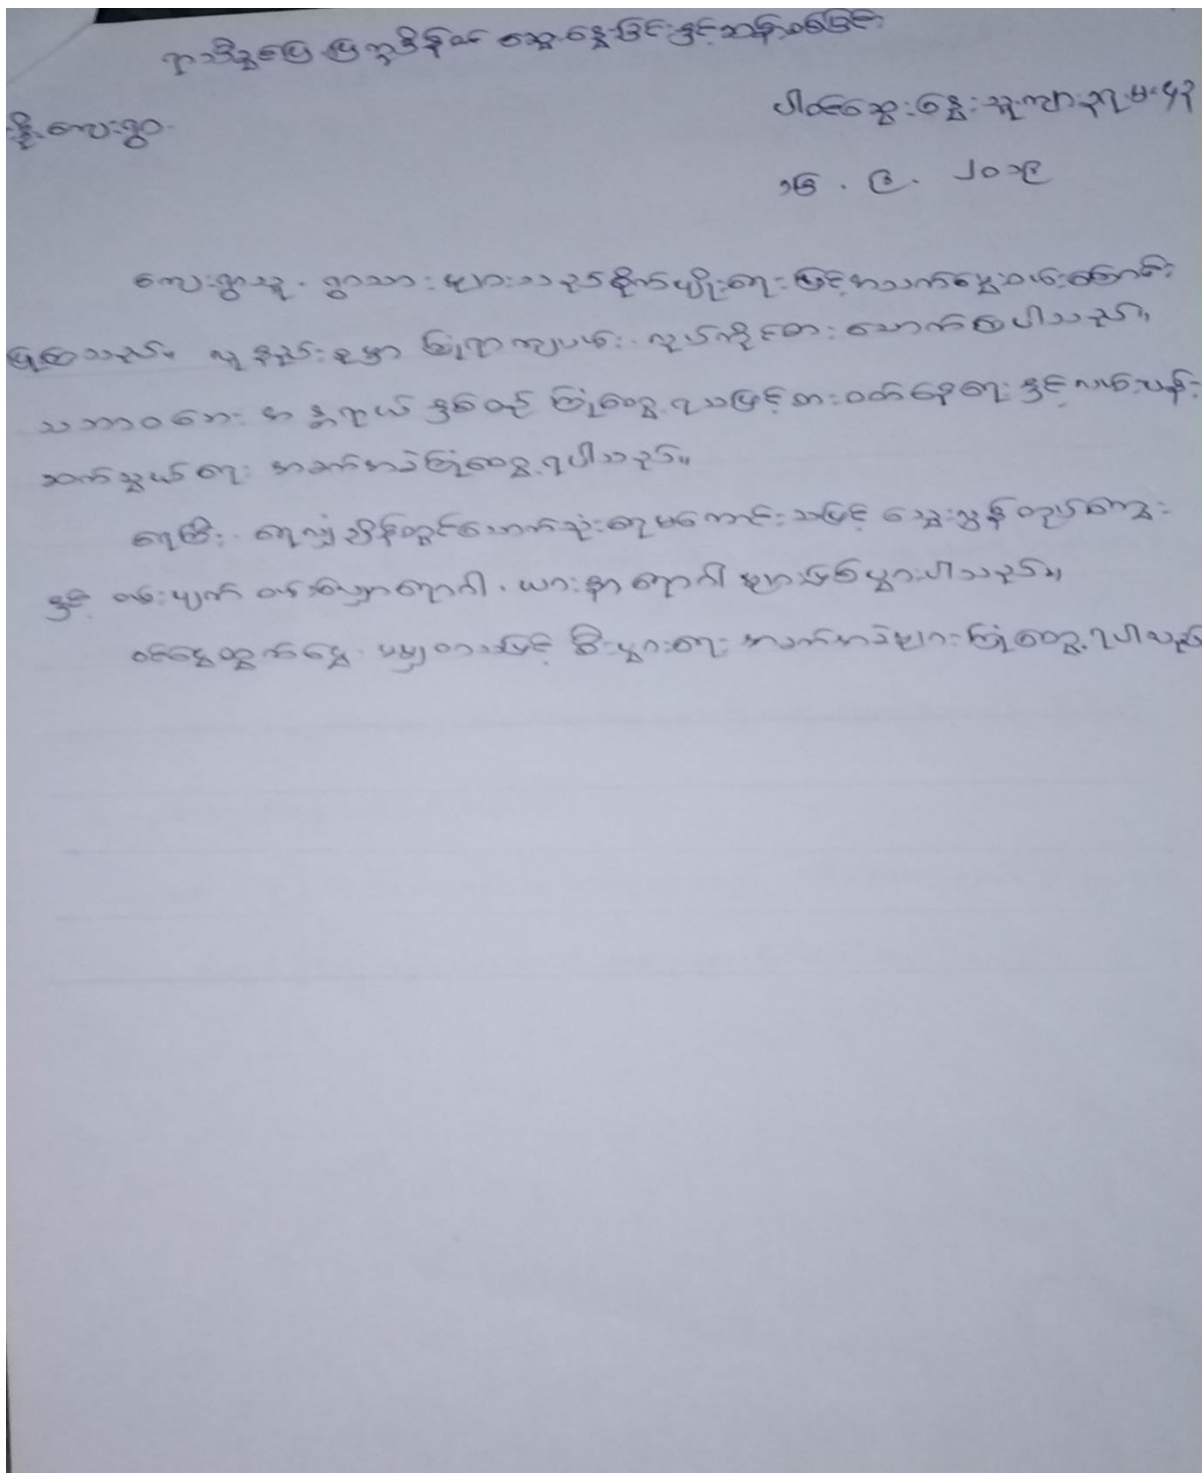 ဆွေးနွေးခြင်းနှင့်ဆန်းစစ်ခြင်း
ကလေးရွာ
ပါဝင်ဆွေးနွေးသူ ကျား ၃၃ မ-၄၃
၁၆ . ၉ . ၂၀၁၉
ကလေးရွာသူ . ရွာသား များသည်စိုက်ပျိုးရေးဖြင့်အသက်မွေးဝမ်းကြောင်း
ပြုကြသည်။ လူနည်းစုမှာ ကြုံရာကျပမ်း လုပ်ကိုင်စား သောက်ကြပါသည်။
သဘာဝဘေး အန္တရာယ် နှစ်စဉ် ကြုံတွေ့ ရသဖြင့်စားဝတ်နေရေး နှင့် လမ်းပန်း
ဆက်သွယ်ရေး အခက်အခဲကြုံတွေ့ ရပါသည်။
ရေကြီး ရေလျှံချိန်တွင်သောက်သုံးရေမကောင်းသဖြင့် သွေးလွန်တုပ်ကွေး
နှင့် ဝမ်းပျက် ဝမ်းလျှောရောဂါ . ယားနာ ရောဂါ များဖြစ်ပွားပါသည်။
ဝင်ငွေထွက်ငွေ မမျှတသဖြင့် စီးပွားရေး အခက်အခဲများ ကြုံတွေ့ ရပါသည်